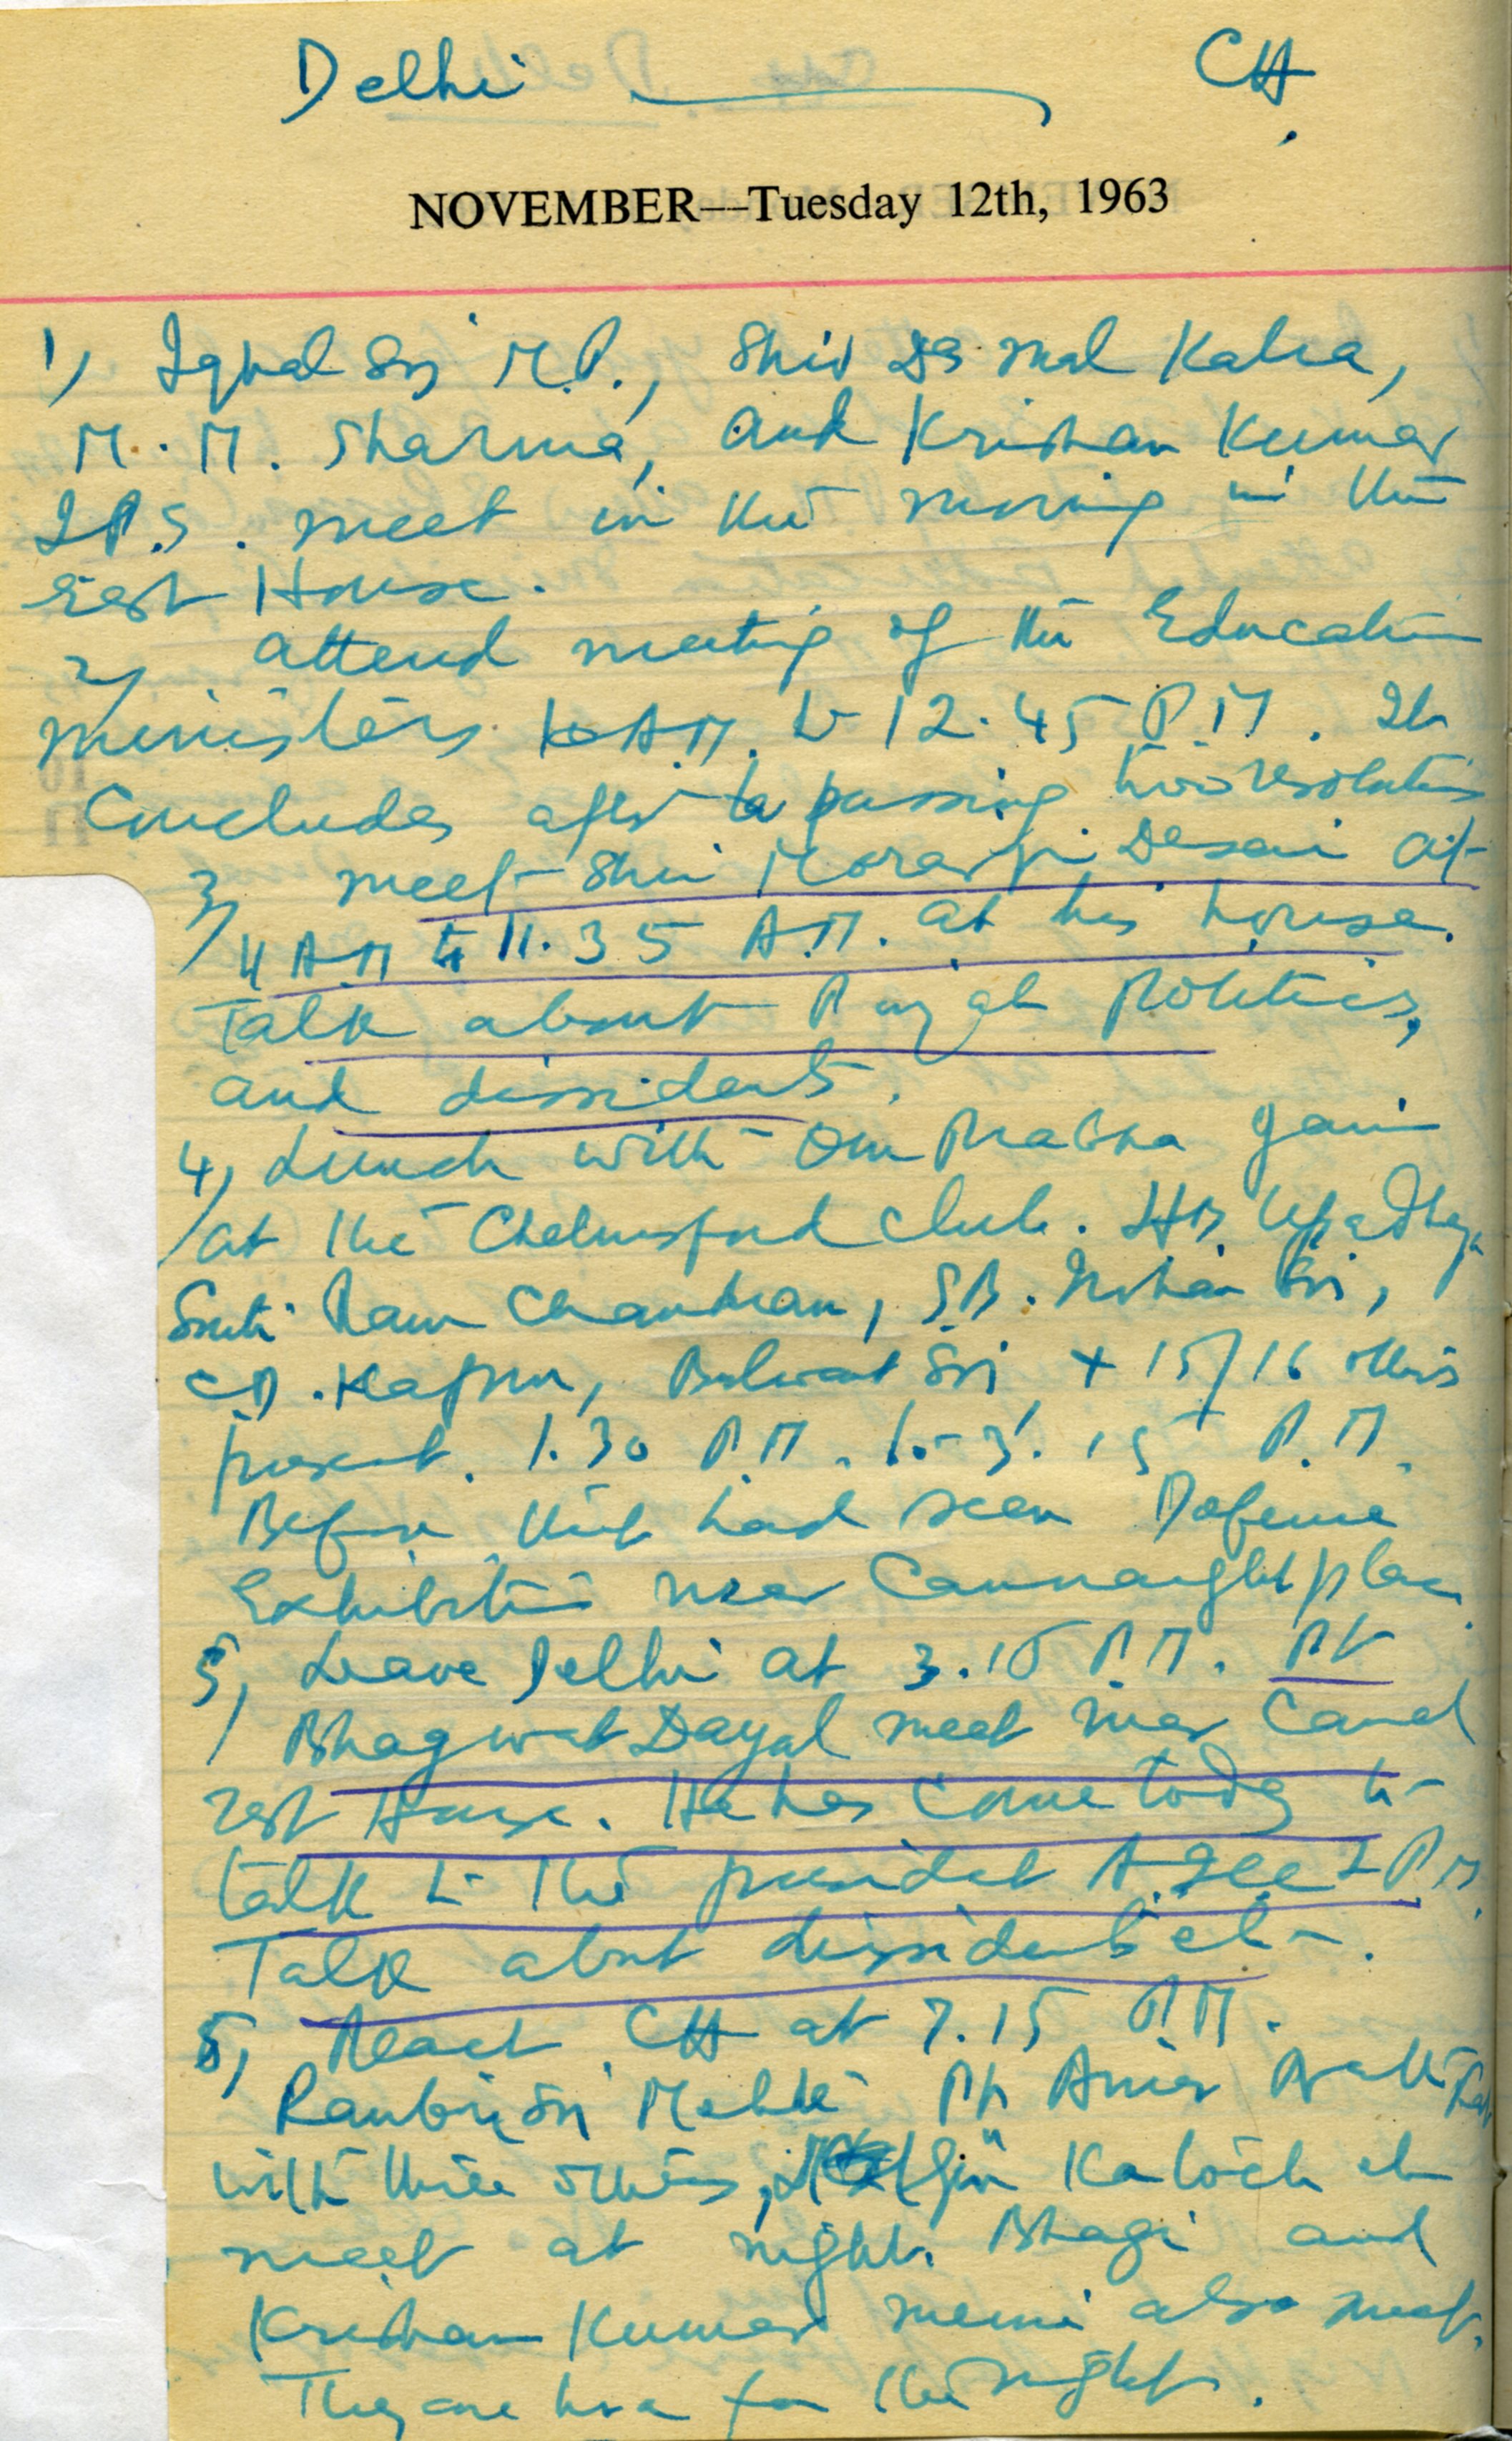 Delhi CH.
NOVEMBER—Tuesday 12th, 1963
1) Iqbal Sin M.P., Shiv Das Mal Kalra,
M. M. Sharma, and Krishan Kumar
I.P.S. meet in the morning in the
rest House.
2) attend meeting of the Education
ministers 10 A.M. to 12.45 P.M. It
concludes after passing two resolutions
3) meet Shri Morarji Desai at
11 A.M. to 11.35 A.M. at his house.
Talk about Punjab politics,
and dissidents.
4) Lunch with Om Prabha Jain
at the Chelmsford Club. Upadhya,
Smti Ram Chandran, S.B.
C.D. Kapur, Balwant Sin + 15/16 others
present. 1.30 P.M. to 3.15 P.M.
Before this had seen Defence
Exhibition near Connaught place.
5) Leave Delhi at 3.15 P.M. Pt
Bhagwat Dayal meet near Canal
rest House. He has come today to
talk to the president
Talk about dissidents etc.
6) Reach CH at 7.15 P.M.
Ranbir Sin Pt Amar Nath
with three others, Katoch etc
meet at night. Bhagi and
Krishan Kumar also meet.
They are here for the night.